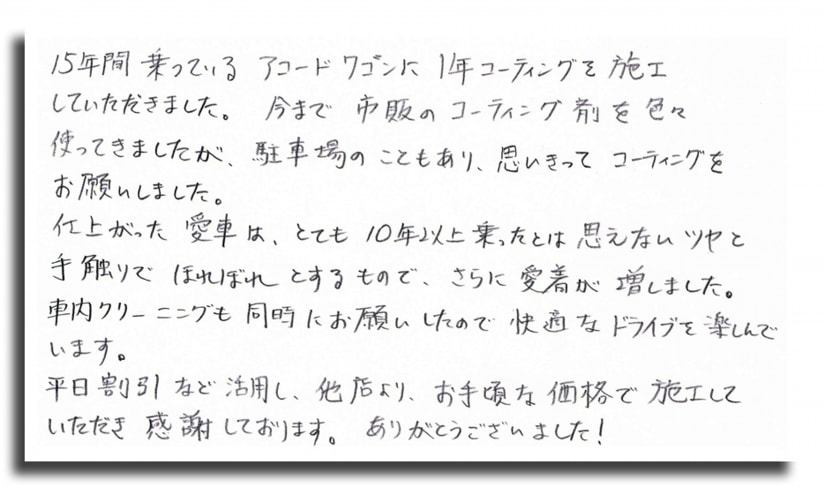 15年間 乗っている アコードワゴンに 1年コーティングを 施工
していただきました。 今まで 市販の コーティング剤を 色々
使ってきましたが、駐車場の こともあり、思いきって コーティングを
お願いしました。
仕上がった 愛車は、とても 10年以上 乗ったとは 思えない ツヤと
手触りで ほれぼれ とするもので、さらに 愛着が 増しました。
車内クリーニングも 同時にお願いしたので 快適な ドライブを 楽しんで
います。
平日割引 など 活用し、他店より、お手頃な 価格で 施工して
いただき 感謝しております。 ありがとうございました!